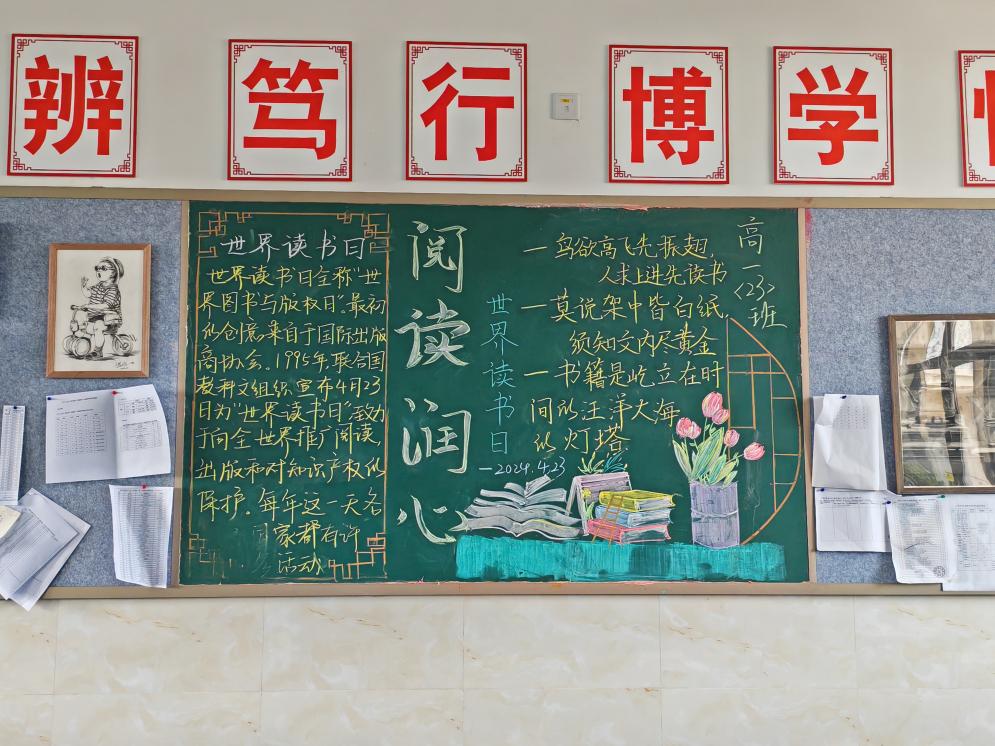 辨 笃 行 博 学
世界读书日
世界读书日全称"世
界图书与版权日"。最初
的创意来自于国际出版
商协会。1995年,联合国
教科文组织宣布4月23
日为"世界读书日"致力
于向全世界推广阅读,
出版和对知识产权的
保护。每年这一天各
国家都有许
活动
阅读润心
世界读书日
一鸟欲高飞先振翅,
人求上进先读书
一莫说架中皆白纸,
须知文内尽黄金
一书籍是屹立在时
间的汪洋大海
的灯塔
—2024.4.23
高一
<23>
班